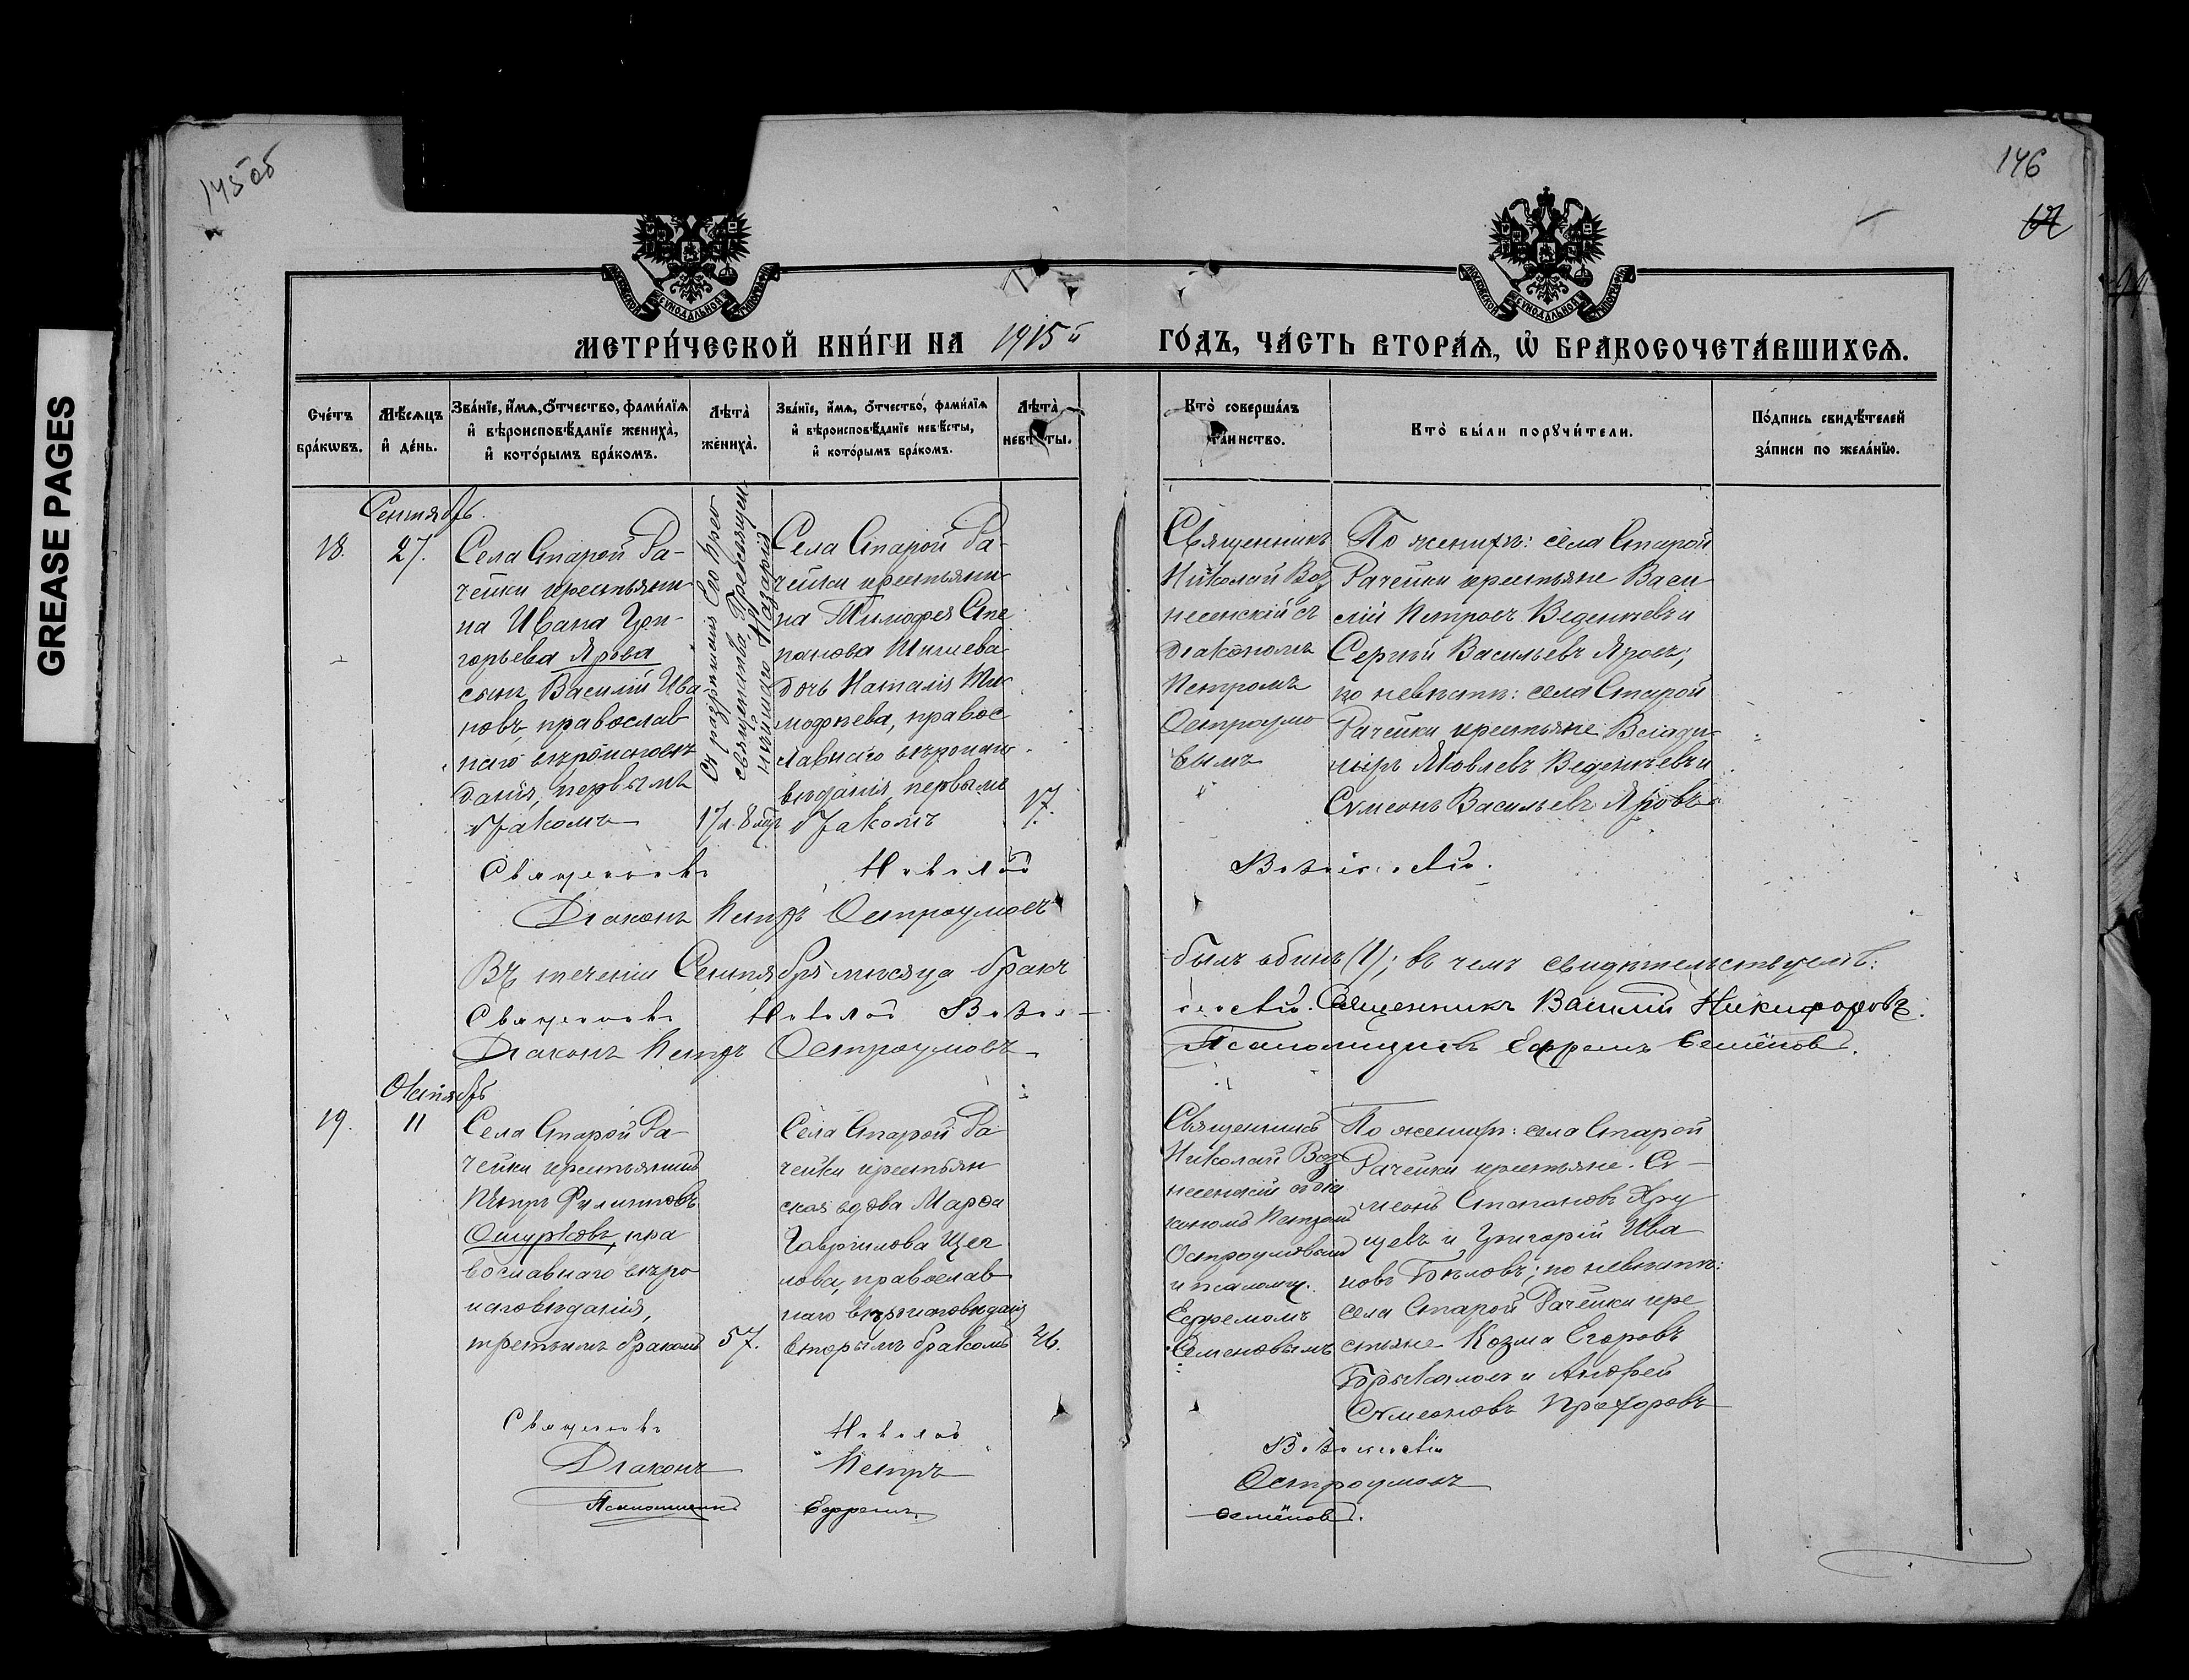 GREASE PAGES
145об
146
МЕТРИ́ЧЕСКОЙ КНИ́ГИ НА 1915й ГО́ДЪ, ЧА́СТЬ ВТОРА́Ѧ, Ѡ҆ БРАКОСОЧЕТА́ВШИХСѦ.
Сче́тъ бра́кѡвъ.
Мѣ́сѧцъ и҆ де́нь.
Зва́нїе, и҆́мѧ, ѻ҆́тчество, фами́лїѧ
и҆ вѣроисповѣ́данїе жениха̀,
и҆ кото́рымъ бра́комъ.
Лѣ́та̀
жениха̀.
Зва́нїе, и҆́мѧ, ѻ҆́тчество, фами́лїѧ
и҆ вѣроисповѣ́данїе невѣ́сты,
и҆ кото́рымъ бра́комъ.
Лѣ́та̀
невѣ́сты.
Кто̀ соверша́лъ
та́инство.
Кто̀ бы́ли порꙋчи́тели.
По́дпись свидѣ́телей
за́писи по жела́нїю.
Сентябрь.
18.
27.
Села Старой Ра-
чейки крестьяни-
на Ивана Гри-
горьева Ярова
сынъ Василій Ива-
новъ, православ-
наго вѣроисповѣ-
данія, первымъ
бракомъ
Съ разрѣшенія Его Прео-
священства, Преосвящен-
нѣйшаго Назарія
17 л. 8 мѣс.
Села Старой Ра-
чейки крестьяни-
на Тимофея Сте-
панова
дочь Наталія Ти-
мофѣева, правос-
лавнаго вѣроиспо-
вѣданія, первымъ
бракомъ
17.
Священникъ
Николай Воз
несенскій съ
діакономъ
Петромъ
Остроумо
вымъ
По женихѣ: села Старой
Рачейки крестьяне Васи-
лій Петровъ Веденѣевъ и
Сергѣй Васильевъ Яровъ;
по невѣстѣ: села Старой
Рачейки крестьяне Влади-
міръ Яковлевъ Веденѣевъ и
Сѵмеонъ Васильевъ Яровъ
Священникъ Николай Вознесенскій.
Діаконъ Петръ Остроумовъ
Въ теченіи Сентября мѣсяца бракъ былъ одинъ (1); въ чемъ свидѣтельствуемъ:
Священникъ Николай Вознесенскій. Священникъ Василій Никифоровъ.
Діаконъ Петръ Остроумовъ Псаломщикъ Ефремъ Семёновъ.
Октябрь
19.
11
Села Старой Ра-
чейки крестьянинъ
Петръ Филипповъ
Ошурковъ, пра
вославнаго вѣро
исповѣданія,
третьимъ бракомъ
57.
Села Старой Ра
чейки крестьян
ская вдова Марѳа
Гаврилова Щег
лова, православ
наго вѣроисповѣданія
вторымъ бракомъ
46.
Священникъ
Николай Воз
несенскій съ діа
кономъ Петромъ
Остроумовымъ
и псаломщ.
Ефремомъ
Семеновымъ
По женихѣ: села Старой
Рачейки крестьяне Сѵ-
меонъ Степановъ Хру
щевъ и Григорій Ива
новъ Бѣловъ; по невѣстѣ:
села Старой Рачейки кре
стьяне Козма Егоровъ
и Андрей
Сѵмеоновъ Прохоровъ
Священникъ Николай Вознесенскій
Діаконъ Петръ Остроумовъ
Псаломщикъ Ефремъ Семёновъ.